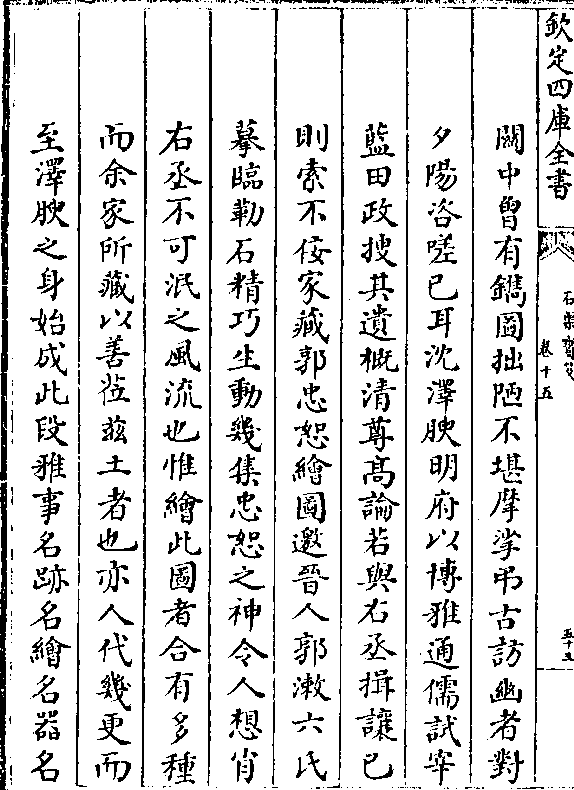 欽定四庫全書
石渠寶笈
卷十五
五十五
關中曾有鐫圖拙陋不堪摩挲弔古訪幽者對
夕陽咨嗟已耳沈澤腴明府以博雅通儒試宰
藍田政搜其遺概清尊髙論若與右丞揖讓已
則索不佞家藏郭忠恕繪圖邀晉人郭漱六氏
摹臨勒石精巧生動幾集忠恕之神令人想肖
右丞不可泯之風流也惟繪此圖者合有多種
而余家所藏以善蒞兹土者也亦人代幾更而
至澤腴之身始成此段雅事名跡名繪名器名